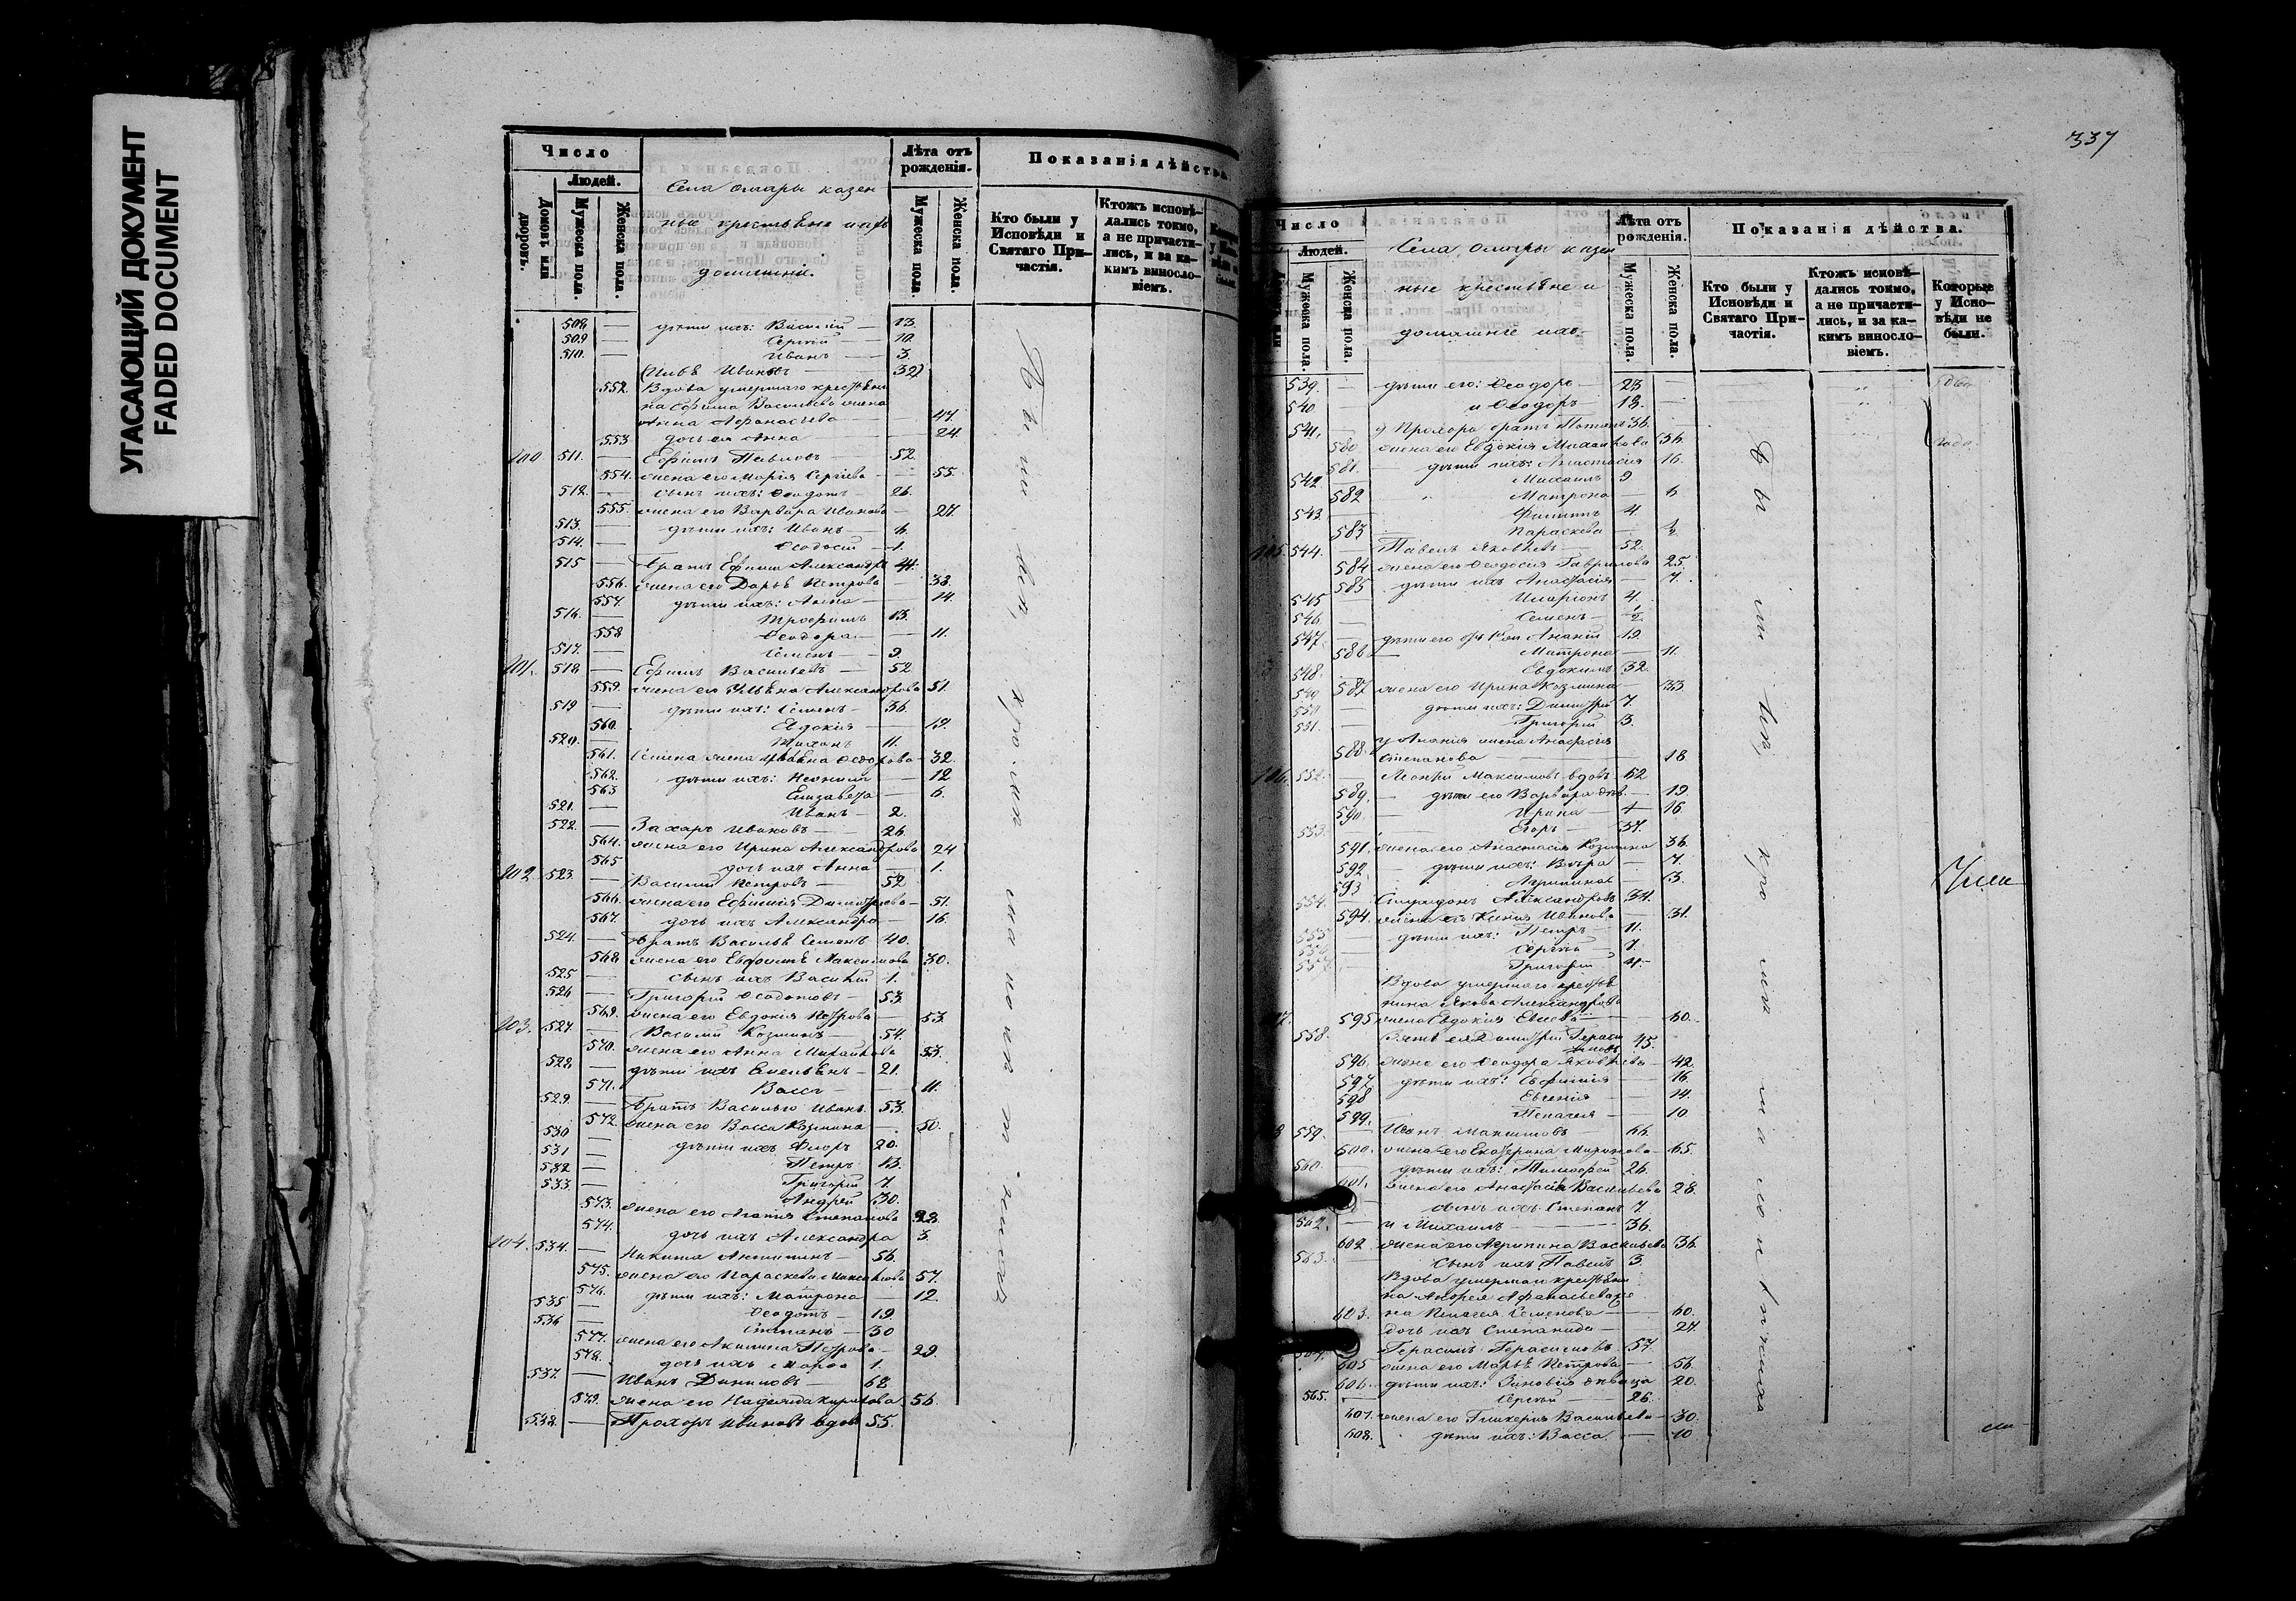 УГАСАЮЩИЙ ДОКУМЕНТ
FADED DOCUMENT
Число
Людей.
Домовъ или дворовъ.
Мужеска пола.
Женска пола.
Села Омары казен
ные крестьяне и ихъ
домашніе.
Лѣта отъ рожденія.
Мужеска пола.
Женска пола.
Показанія дѣйства.
Кто были у Исповѣди и Святаго Причастія.
Ктожъ исповѣдались токмо, а не причастились, и за какимъ винословіемъ.
508 — дѣти ихъ: Василій — 13.
509 — Сергѣй — 10.
510. — Иванъ — 3.
Иванъ — 32
552. Вдова умершаго крестьяни
на Ефима Васильева жена
Анна Афанасьева — 47
553 дочь ея Анна — 24.
100 511. — Ефимъ Павловъ — 52.
554. жена его Марія Сергѣева — 55.
512. — сынъ ихъ: Ѳеодотъ — 26.
555. жена его Варвара Иванова — 27.
513. — дѣти ихъ: Иванъ — 4.
514. — Ѳеодосій — 1.
515 — Братъ Ефима Александръ 44.
556. жена его Дарья Петрова — 38.
557. дѣти ихъ: Анна — 14.
516. — Трофимъ 13.
558 Ѳеодора — 11.
517. — Семенъ — 9.
101. 518 — Ефимъ Васильевъ — 52.
559. жена его Ульяна Александрова 51.
519 — дѣти ихъ: Семенъ — 36.
560. Евдокія — 19.
520. — 11.
561. Семена жена Ѳедорова — 32.
562. дѣти ихъ: — 12
563 Елизавета — 6.
521. — Иванъ — 2.
522. — Захаръ Ивановъ — 26.
564. жена его Ирина Александрова 24
565 дочь ихъ Анна — 1.
102. 523. — Василій Петровъ — 52
566. жена его Ефимія Димитріева — 51.
567. дочь ихъ Александра — 16.
524. — Братъ Василья Семенъ 40.
568 жена его Максимова 30.
525 — сынъ ихъ Василій 1.
526 — Григорій Ѳедотовъ — 53.
569. жена его Евдокія Петрова — 53.
103. 527 — Василій Козминъ — 54.
570. жена его Анна Михайлова 53.
528 — дѣти ихъ Емельянъ — 21.
571. Васса — 11.
529. — Братъ Василья Иванъ 53.
572. жена его Васса Козмина — 50.
530 — дѣти ихъ Флоръ 20.
531 — Петръ 13.
532 — Григорій 7.
533. — Андрей 30.
573. жена его Агафія Степанова 28.
574. дочь ихъ Александра 3.
104. 534. — Никита Антиповъ — 56.
575. жена его Параскева 57.
576. дѣти ихъ: Матрона — 12.
535 — Ѳеодотъ — 19.
536 — Степанъ — 30
577. жена его Акилина Петрова — 29.
578. дочь ихъ Марѳа 1.
537. — Иванъ Даниловъ — 68
579. жена его Надежда Кирилова 56.
538. — Прохоръ Ивановъ вдов 55.
337
Число
Людей.
Мужеска пола.
Женска пола.
Села Омары казен
ные крестьяне и
домашніе ихъ.
Лѣта отъ рожденія.
Мужеска пола.
Женска пола.
Показанія дѣйства.
Кто были у Исповѣди и Святаго Причастія.
Ктожъ исповѣдались токмо, а не причастились, и за какимъ винословіемъ.
Которые у Исповѣди не были.
539. — дѣти его: Ѳеодоръ — 23
540 — и Ѳеодоръ — 18.
541. у Прохора братъ 36.
580 жена его Евдокія Михайлова 36.
581. дѣти ихъ: Анастасія 16.
542 — Михаилъ 9
582 Матрона — 6
543. — Филиппъ 4.
583 Параскева — ½
105. 544. — Павелъ Яковлевъ — 52.
584 жена его Ѳеодосія Гаврилова 25.
585 дѣти ихъ Анастасія — 7.
545 Иларіонъ 4.
546 — Семенъ — ½
547. — дѣти его Ананій 19.
586 Матрона — 11.
548. — Евдокимъ 32.
587 жена его Ирина Козмина — 33.
549 дѣти ихъ: Димитрій 7.
551. — Григорій 3.
у Ананія жена Анастасія
588. Степанова — 18
106. 552. — Максимовъ вдовъ 62
589. дѣти его Варвара дѣв. — 19
590 Ирина — 16.
553. — Егоръ — 37.
591. жена его Анастасія Козмина 36.
592 дѣти ихъ: Вѣра — 7.
593 — 3.
554. — Спиридонъ Александровъ 34.
594. жена его Ксенія Иванова — 31.
555 — дѣти ихъ: Петръ — 11.
Сергѣй — 7.
557. — Григорій 4.
Вдова умершаго крестья
нина Якова Александрова
595 жена Евдокія — 60.
558. Зять ея Димитрій Гераси
мовъ 45.
596. жена его Ѳеодора Яковлева — 42.
597. дѣти ихъ: Евфимія — 16.
598 Евгенія — 14.
599. Пелагея — 10
559. — Иванъ Максимовъ — 66.
600. жена его Екатерина Миронова — 65.
560. — дѣти ихъ: Тимофей 26.
601. жена его Анастасія Васильева 28.
сынъ ихъ Степанъ 7.
562. — и Михаилъ — 36.
602. жена его Агрипина Васильева 36.
563. — сынъ ихъ Павелъ 3.
Вдова умершаго крестьяни
на Андрея Афанасьева же
603. на Пелагея Семенова — 60.
дочь ихъ Степанида — 27.
Герасимъ Герасимовъ 57.
605 жена его Марья Петрова — 56.
606. дѣти ихъ: Зиновія дѣвица 20.
565. — Сергѣй — 26.
607. жена его Гликерія Васильева — 30.
608. дѣти ихъ: Васса — 10